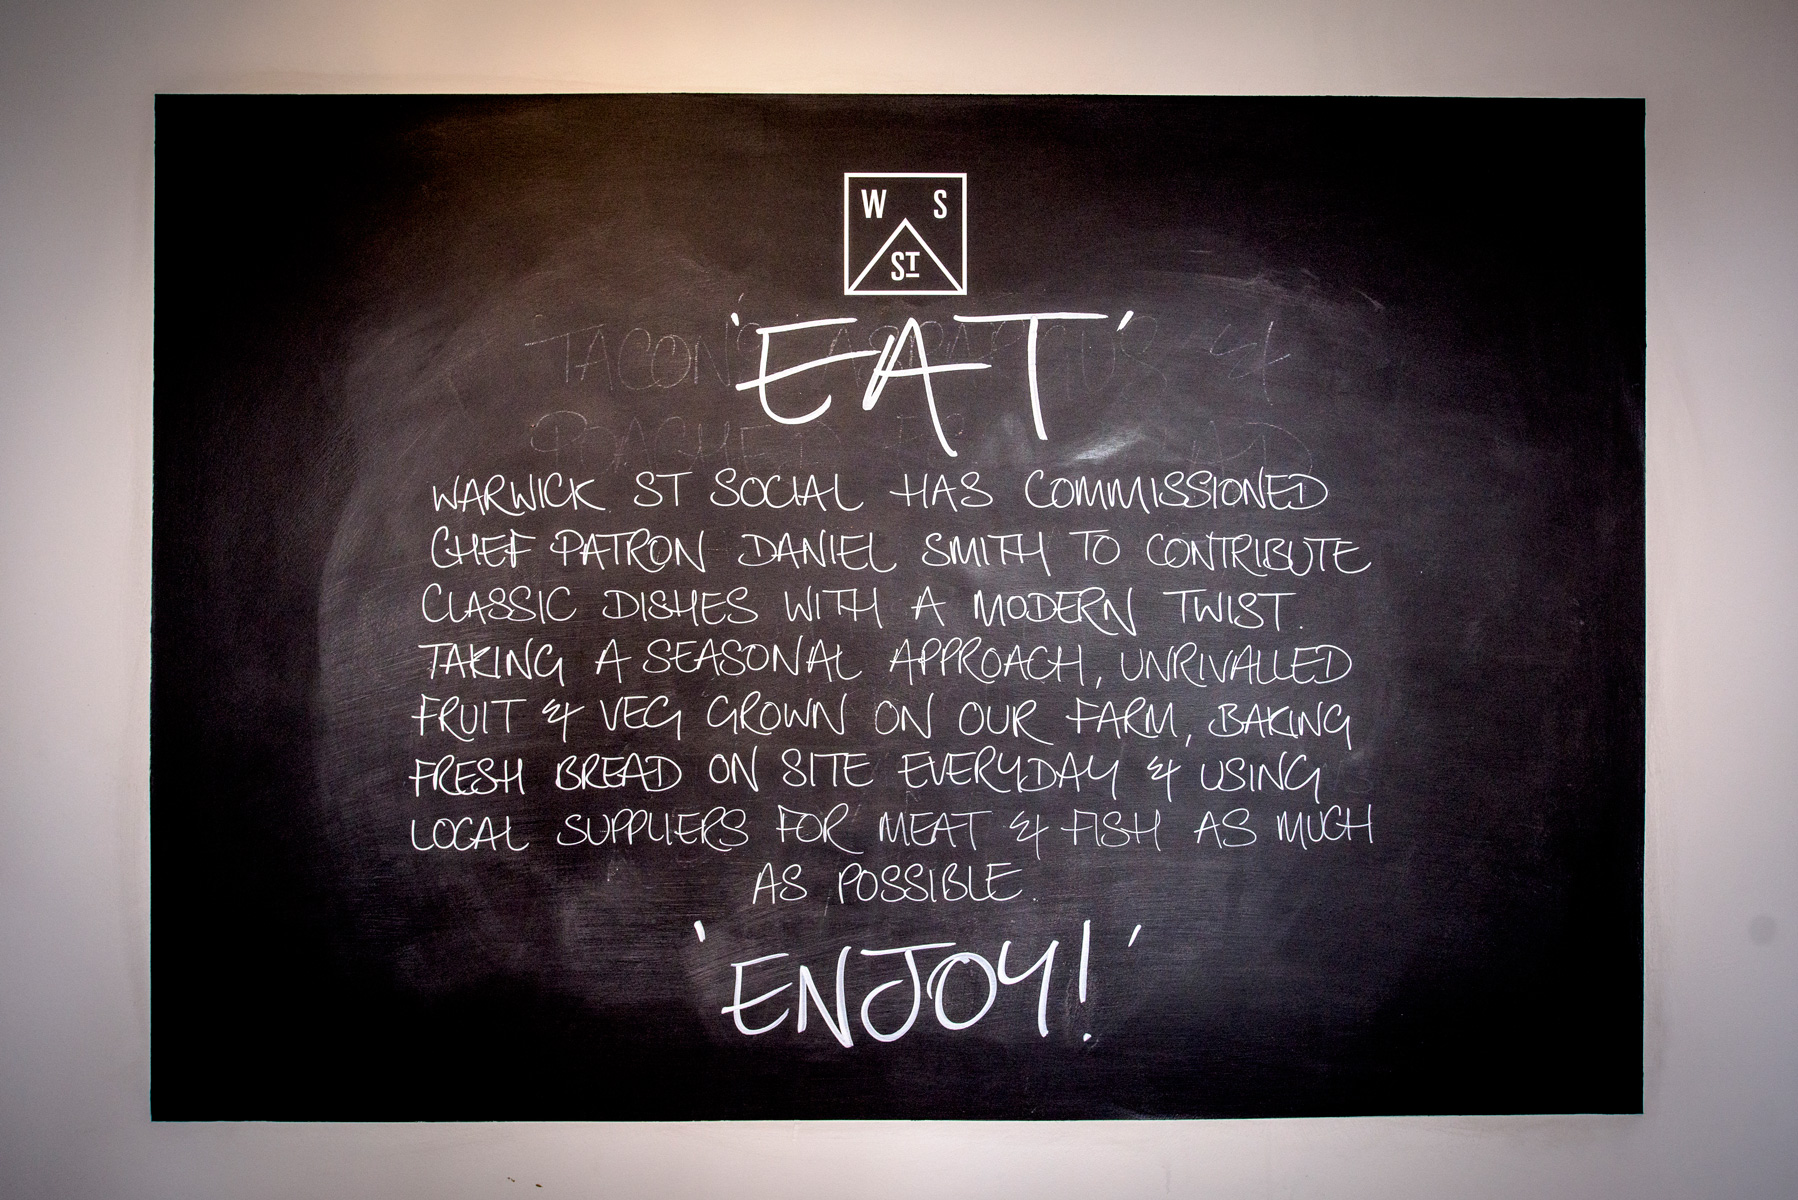 W S
ST
'EAT'
WARWICK ST SOCIAL HAS COMMISSIONED
CHEF PATRON DANIEL SMITH TO CONTRIBUTE
CLASSIC DISHES WITH A MODERN TWIST.
TAKING A SEASONAL APPROACH, UNRIVALLED
FRUIT & VEG GROWN ON OUR FARM, BAKING
FRESH BREAD ON SITE EVERYDAY & USING
LOCAL SUPPLIERS FOR MEAT & FISH AS MUCH
AS POSSIBLE.
'ENJOY!'